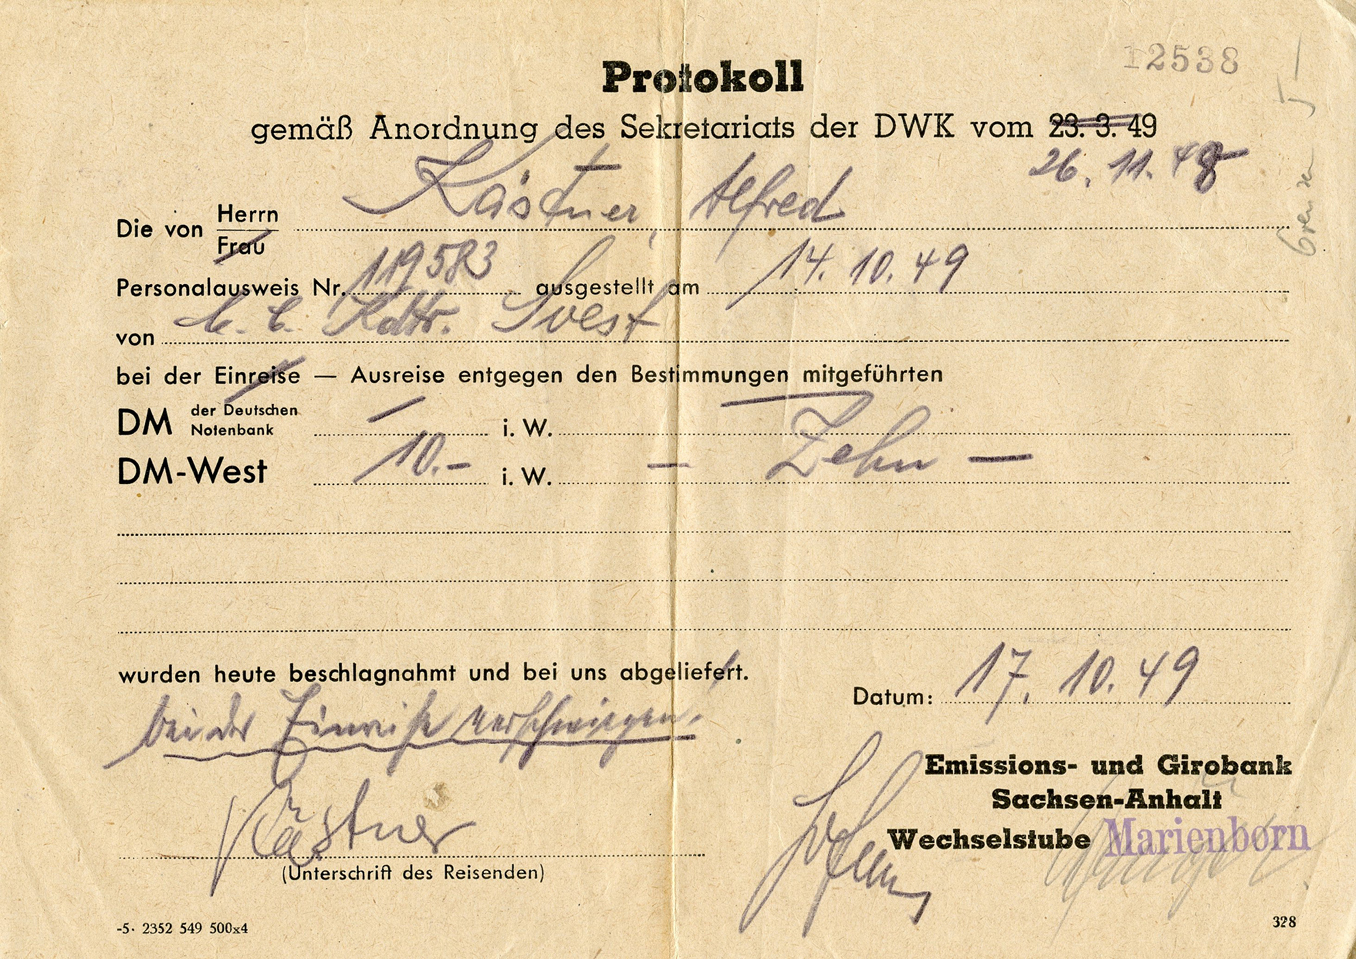 12538
Protokoll
gemäß Anordnung des Sekretariats der DWK vom 23. 3. 49
26. 11. 48
Die von Herrn Kästner, Alfred
Frau
Personalausweis Nr. 119583 ausgestellt am 14. 10. 49
von
bei der Einreise — Ausreise entgegen den Bestimmungen mitgeführten
DM der Deutschen Notenbank — i. W.
DM-West 10.- i. W. — Zehn —
wurden heute beschlagnahmt und bei uns abgeliefert.
Datum: 17. 10. 49
bei der Einreise verschwiegen.
Emissions- und Girobank
Sachsen-Anhalt
Wechselstube Marienborn
Kästner
(Unterschrift des Reisenden)
-5· 2352 549 500x4
328